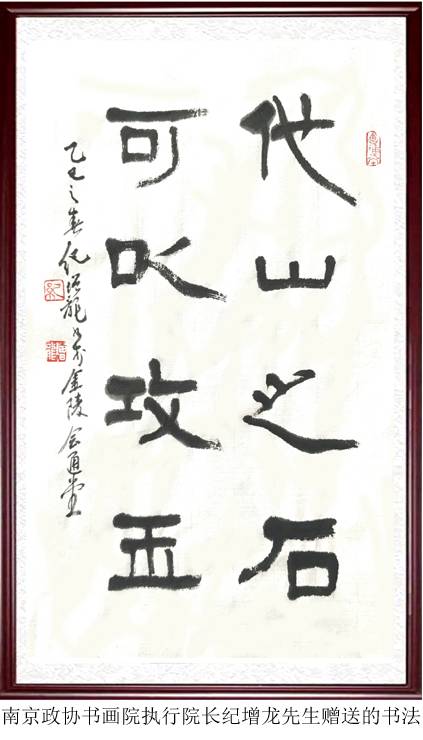 他山之石
可以攻玉
乙巳之春纪增龍书于金陵会通堂
纪
南京政协书画院执行院长纪增龙先生赠送的书法